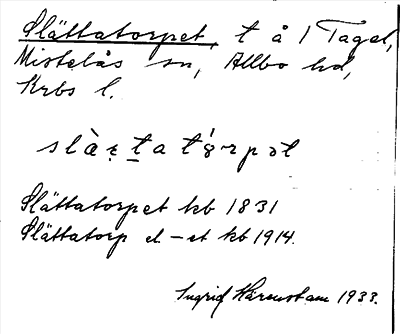 Slättatorpet, t å 1 Tagel,
Mistelås sn, Allbo hd,
Krbs l.
slàṭa tórpət
Slättatorpet kb 1831
Slättatorp el. -et kb 1914.
Ingrid Härenstam 1933.